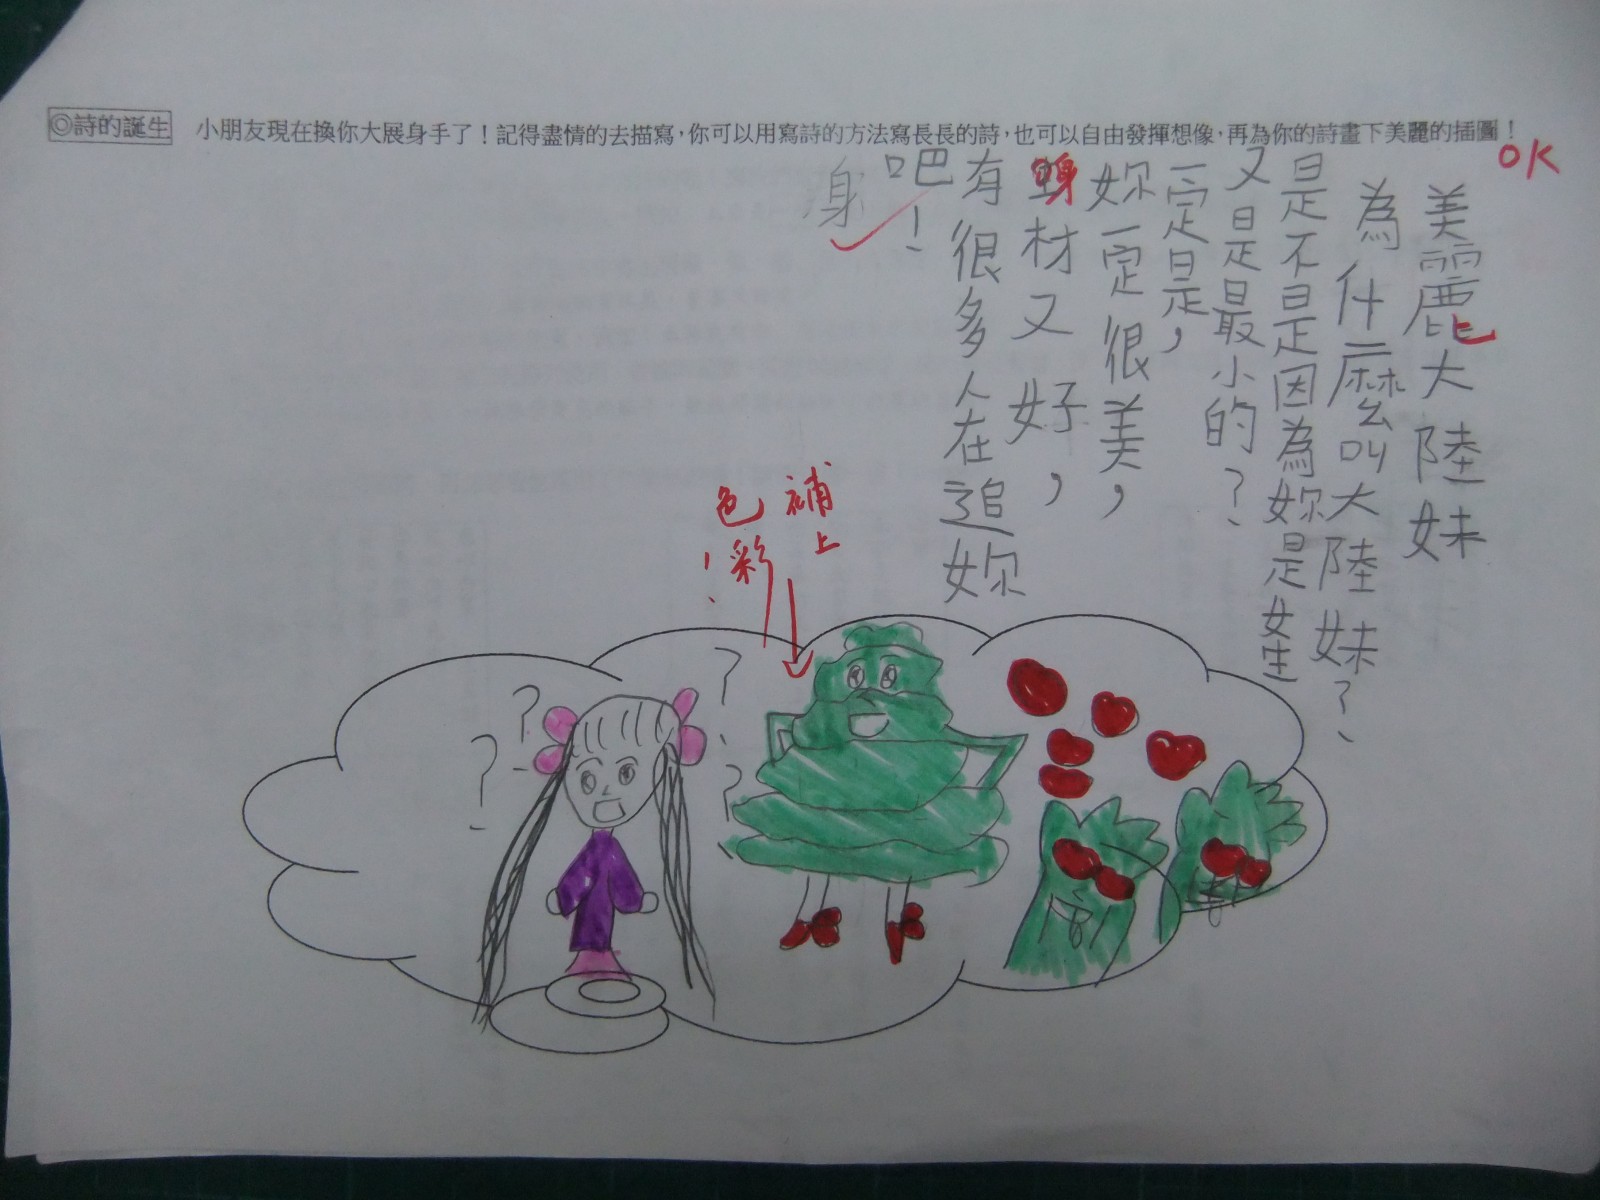 ◎詩的誕生 小朋友現在換你大展身手了！記得盡情的去描寫，你可以用寫詩的方法寫長長的詩，也可以自由發揮想像，再為你的詩畫下美麗的插圖！
OK
美麗大陸妹
為什麼叫大陸妹？
是不是因為妳是女生
又是最小的？
一定是，
妳一定很美，
身材又好，
有很多人在追妳
吧！
身
補上
色彩！